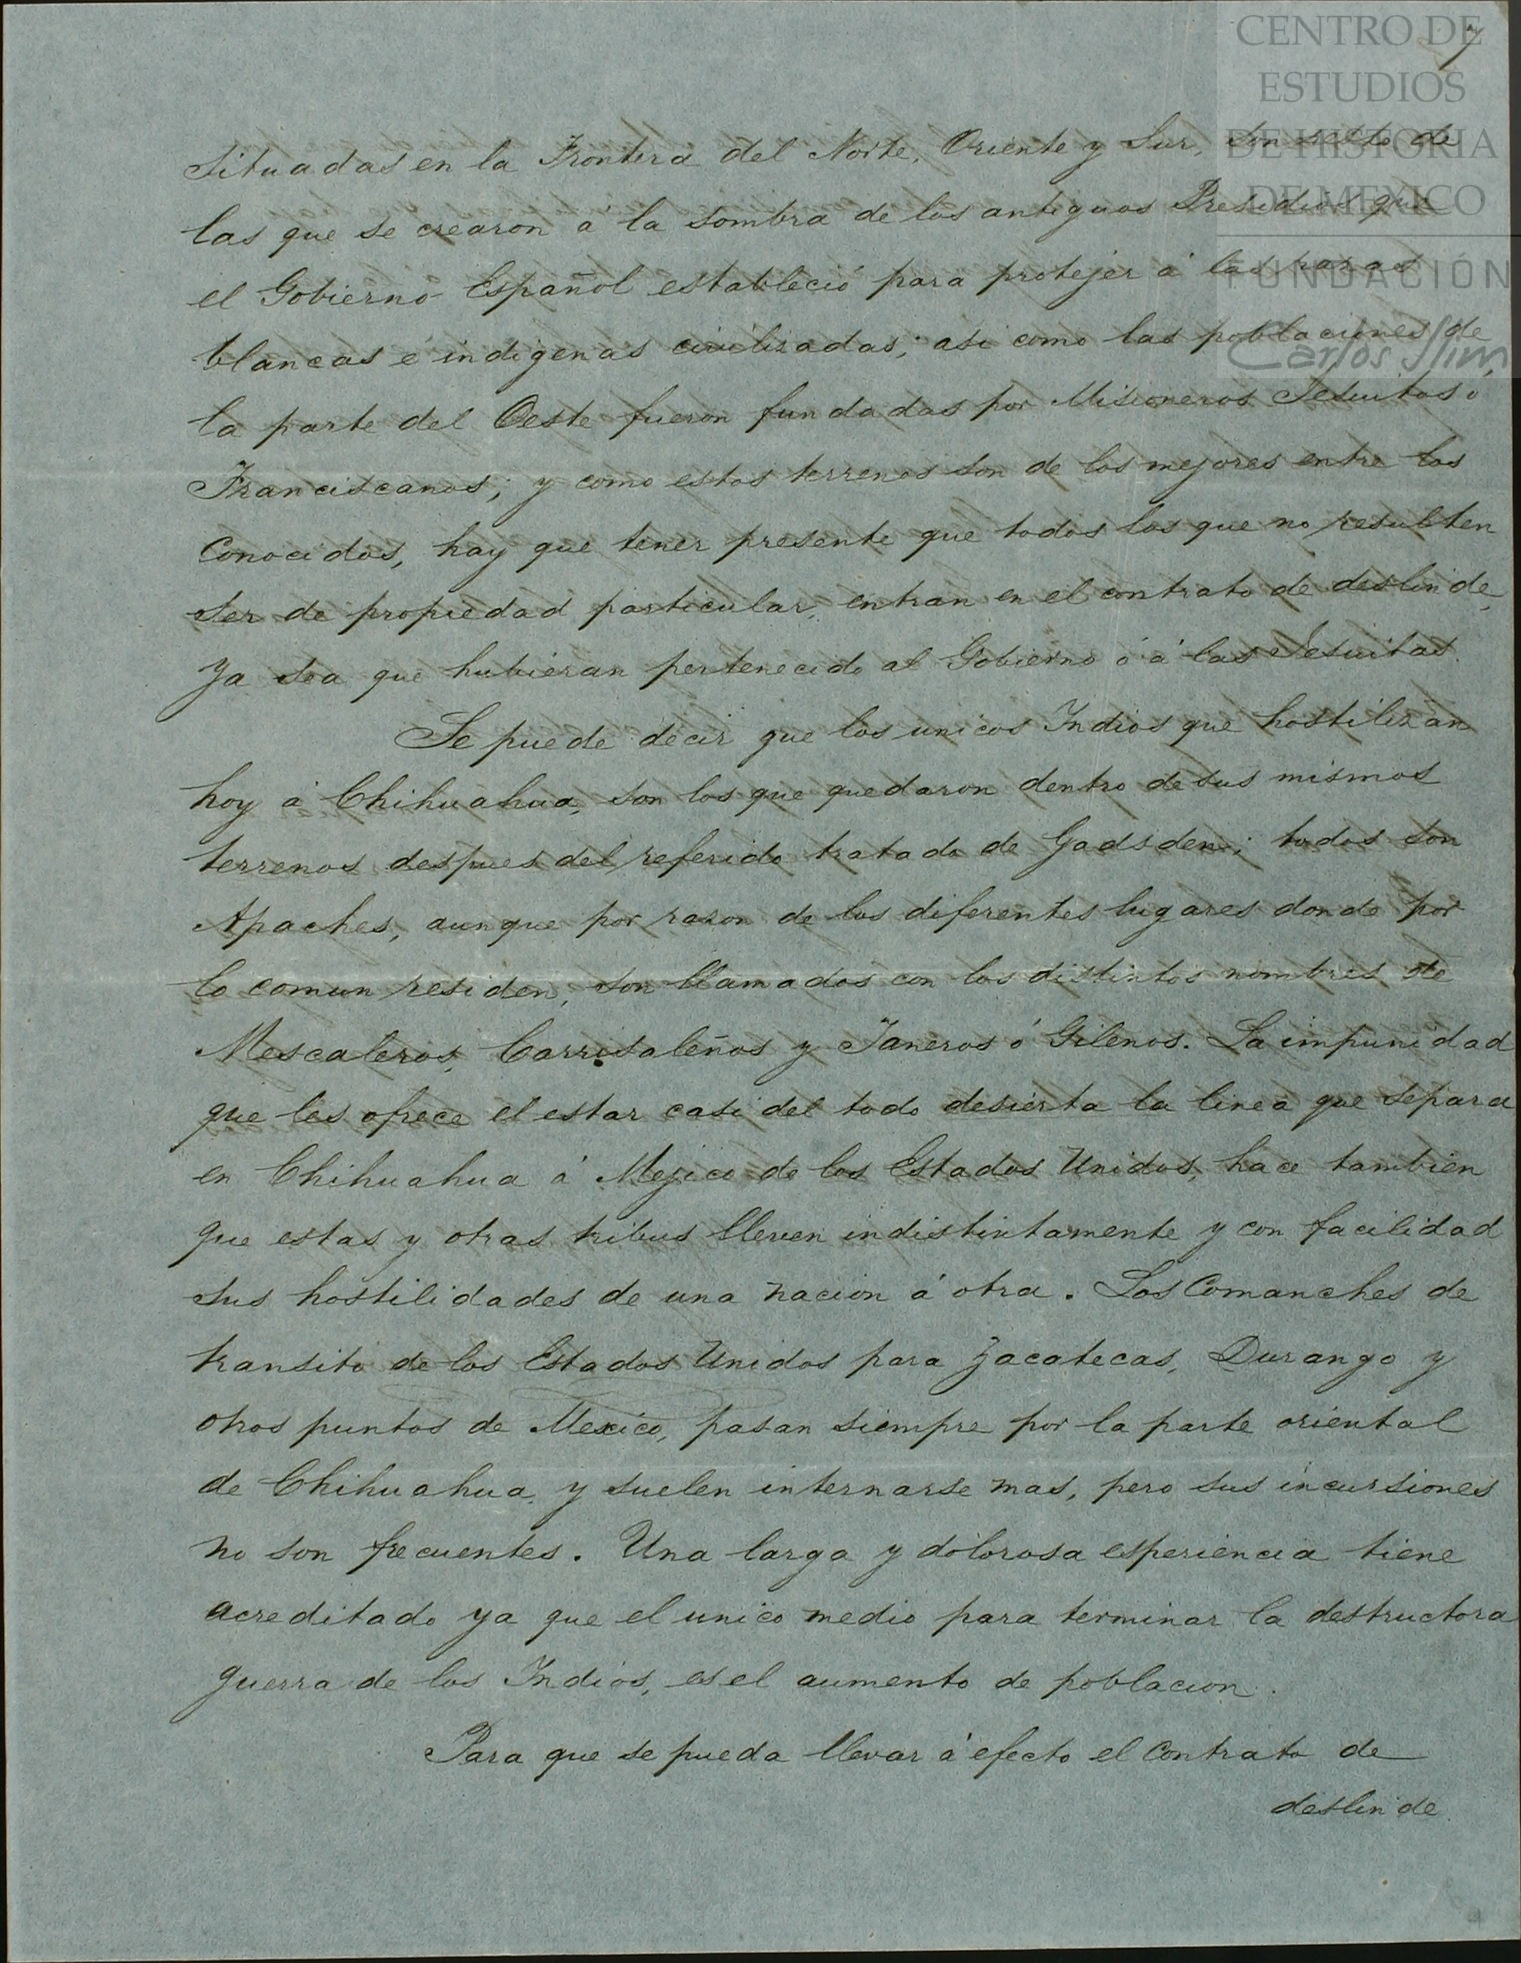 CENTRO DE
ESTUDIOS
DE HISTORIA
DE MEXICO
FUNDACIÓN
Carlos Slim
7
situadas en la Frontera del Norte, Oriente y Sur, son resto de
las que se crearon á la sombra de los antiguos Presidios que
el Gobierno Español estableció para protejer á las razas
blancas é indigenas civilizadas; asi como las poblaciones de
la parte del Oeste fueron fundadas por Misioneros Jesuitas ó
Franciscanos; y como estos terrenos son de los mejores entre los
conocidos, hay que tener presente que todos los que no resulten
ser de propiedad particular, entran en el contrato de deslinde,
ya sea que hubieran pertenecido al Gobierno ó á los Jesuitas.
Se puede decir que los unicos Indios que hostilizan
hoy á Chihuahua, son los que quedaron dentro de sus mismos
terrenos despues del referido tratado de Gadsden; todos son
Apaches, aunque por razon de los diferentes lugares donde por
lo comun residen, son llamados con los distintos nombres de
Mescaleros, Carrisaleños y Janeros ó Gileños. La impunidad
que les ofrece el estar casi del todo desierta la linea que separa
en Chihuahua á Mejico de los Estados Unidos, hace tambien
que estas y otras tribus lleven indistintamente y con facilidad
sus hostilidades de una nacion á otra. Los Comanches de
transito de los Estados Unidos para Zacatecas, Durango y
otros puntos de Mexico, pasan siempre por la parte oriental
de Chihuahua, y suelen internarse mas, pero sus incursiones
no son frecuentes. Una larga y dolorosa esperiencia tiene
acreditado ya que el unico medio para terminar la destructora
guerra de los Indios, es el aumento de poblacion.
Para que se pueda llevar á efecto el contrato de
deslinde